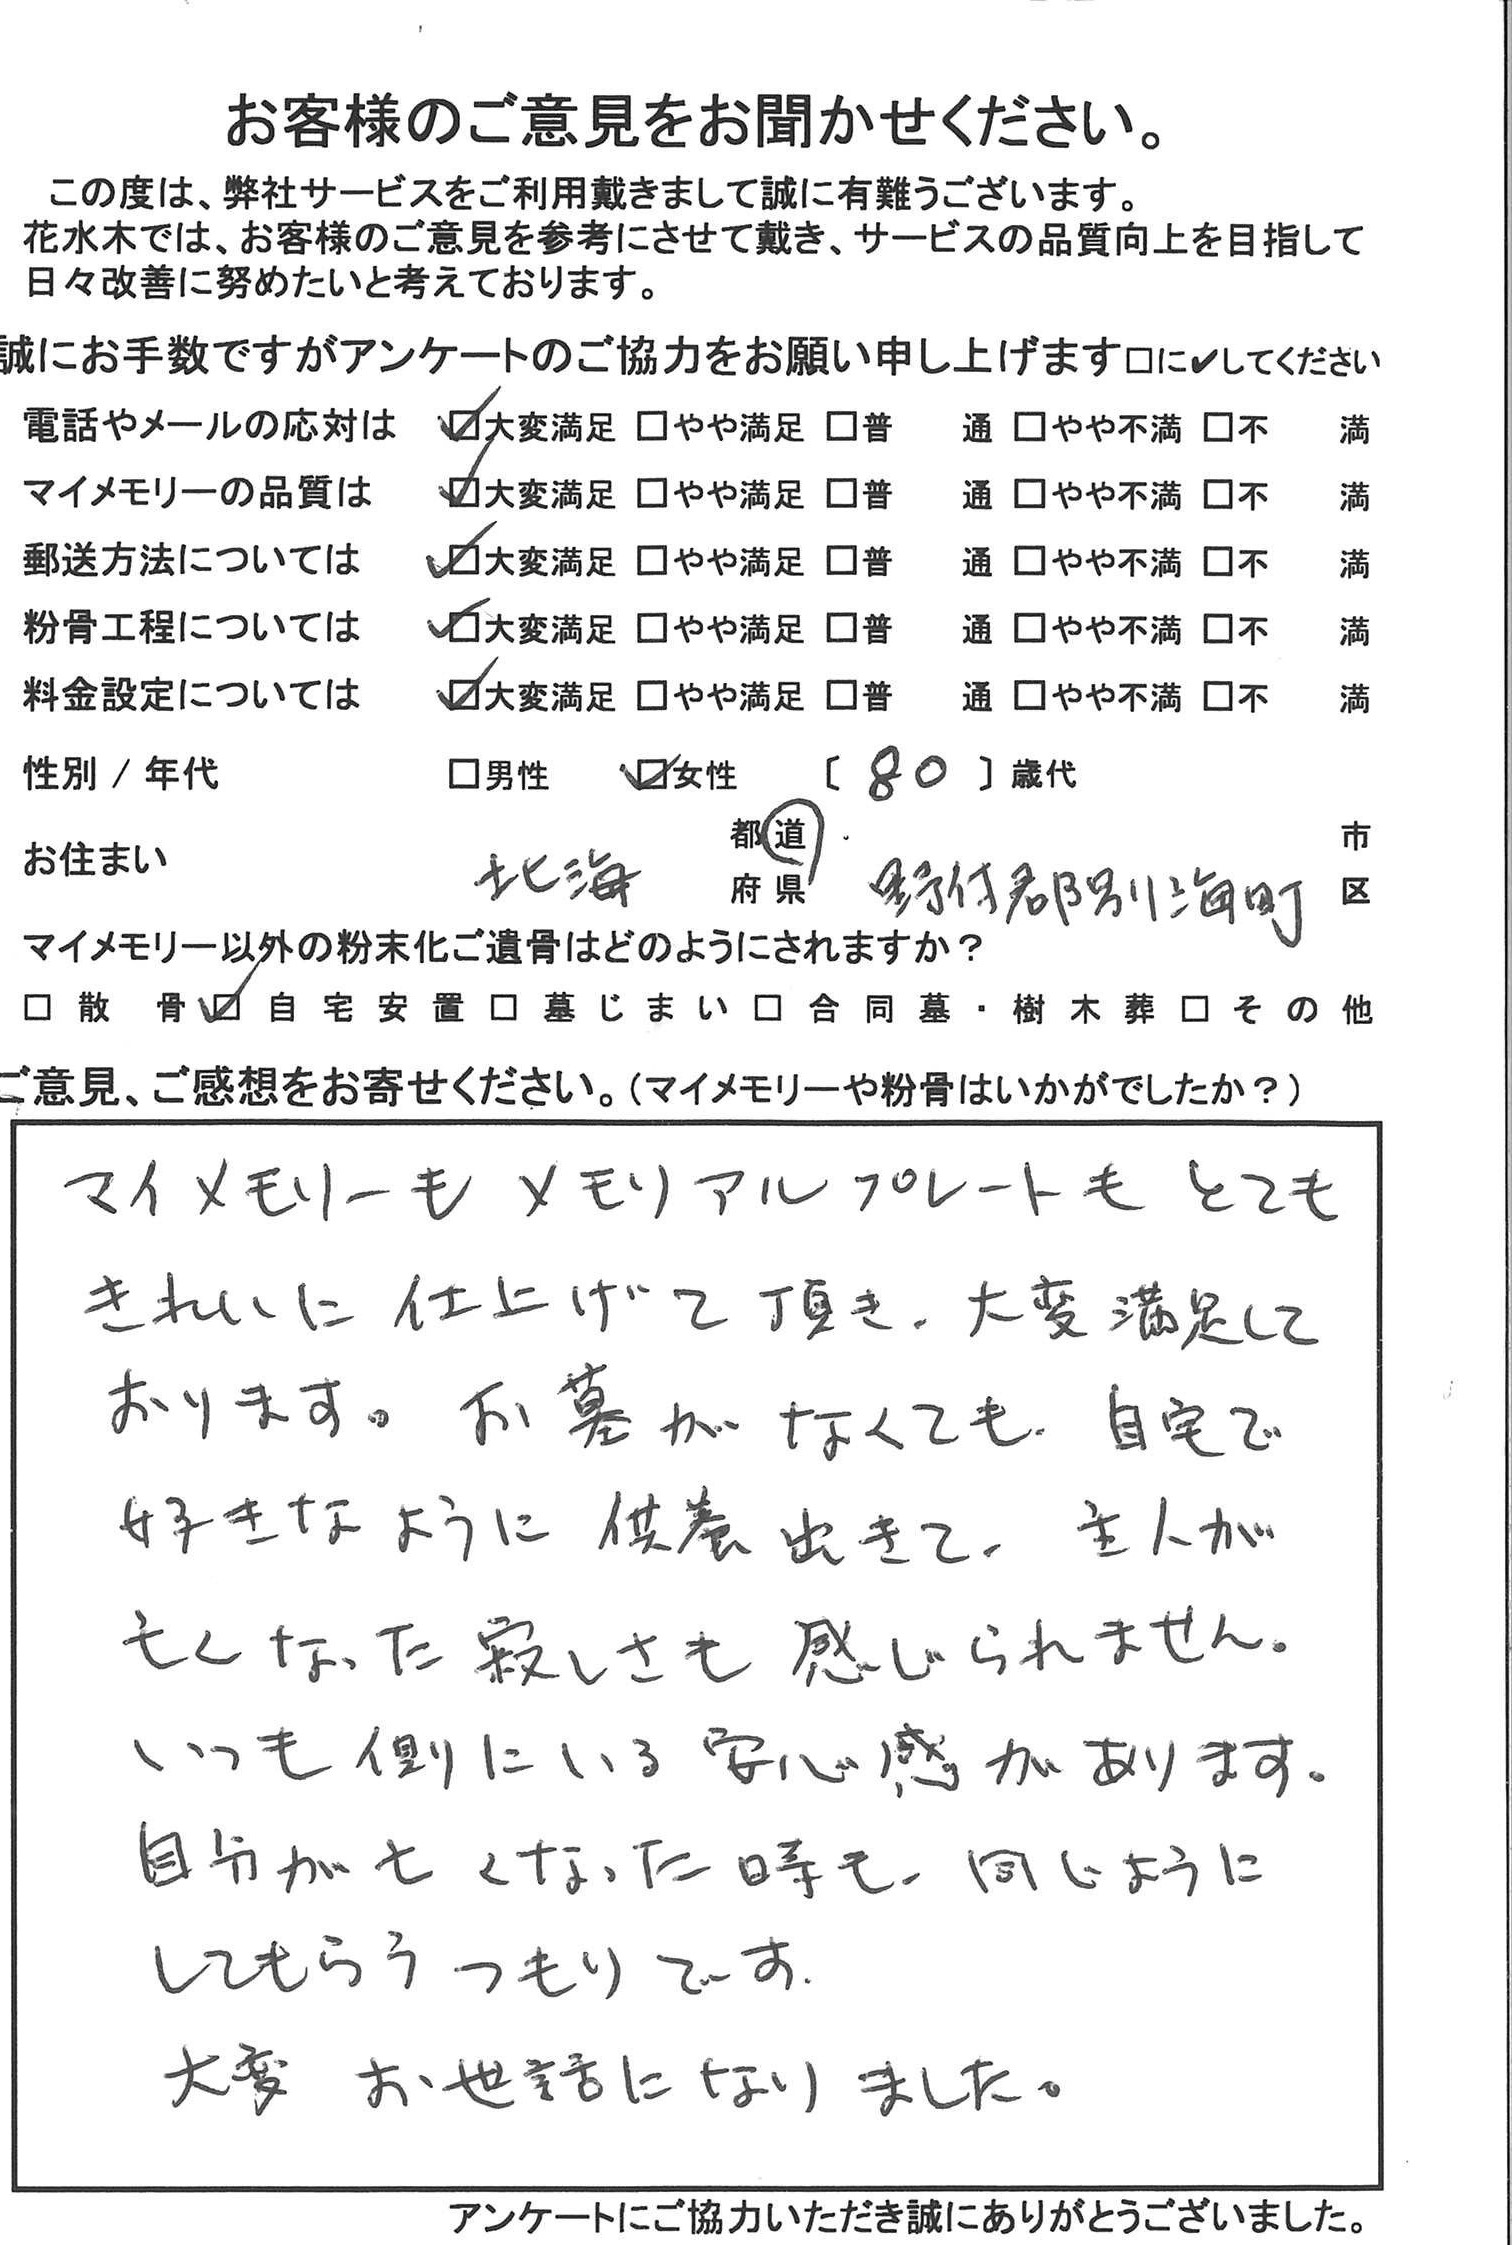 お客様のご意見をお聞かせください。
この度は、弊社サービスをご利用戴きまして誠に有難うございます。
花水木では、お客様のご意見を参考にさせて戴き、サービスの品質向上を目指して
日々改善に努めたいと考えております。
誠にお手数ですがアンケートのご協力をお願い申し上げます□に✔してください
電話やメールの応対は ☑大変満足 □やや満足 □普 通 □やや不満 □不 満
マイメモリーの品質は ☑大変満足 □やや満足 □普 通 □やや不満 □不 満
郵送方法については ☑大変満足 □やや満足 □普 通 □やや不満 □不 満
粉骨工程については ☑大変満足 □やや満足 □普 通 □やや不満 □不 満
料金設定については ☑大変満足 □やや満足 □普 通 □やや不満 □不 満
性別 / 年代 □男性 ☑女性 〔 80 〕歳代
お住まい 北海 都道府県 野付郡別海町 市区
マイメモリー以外の粉末化ご遺骨はどのようにされますか？
□ 散 骨 ☑ 自宅安置 □ 墓じまい □ 合同墓・樹木葬 □ その他
ご意見、ご感想をお寄せください。（マイメモリーや粉骨はいかがでしたか？）
マイメモリーも メモリアルプレートも とても
きれいに 仕上げて 頂き、大変満足して
おります。お墓が なくても、自宅で
好きなように 供養出きて、主人が
亡くなった寂しさも 感じられません。
いつも 側にいる 安心感が あります。
自分が亡くなった時も、同じように
してもらうつもりです。
大変 お世話になりました。
アンケートにご協力いただき誠にありがとうございました。